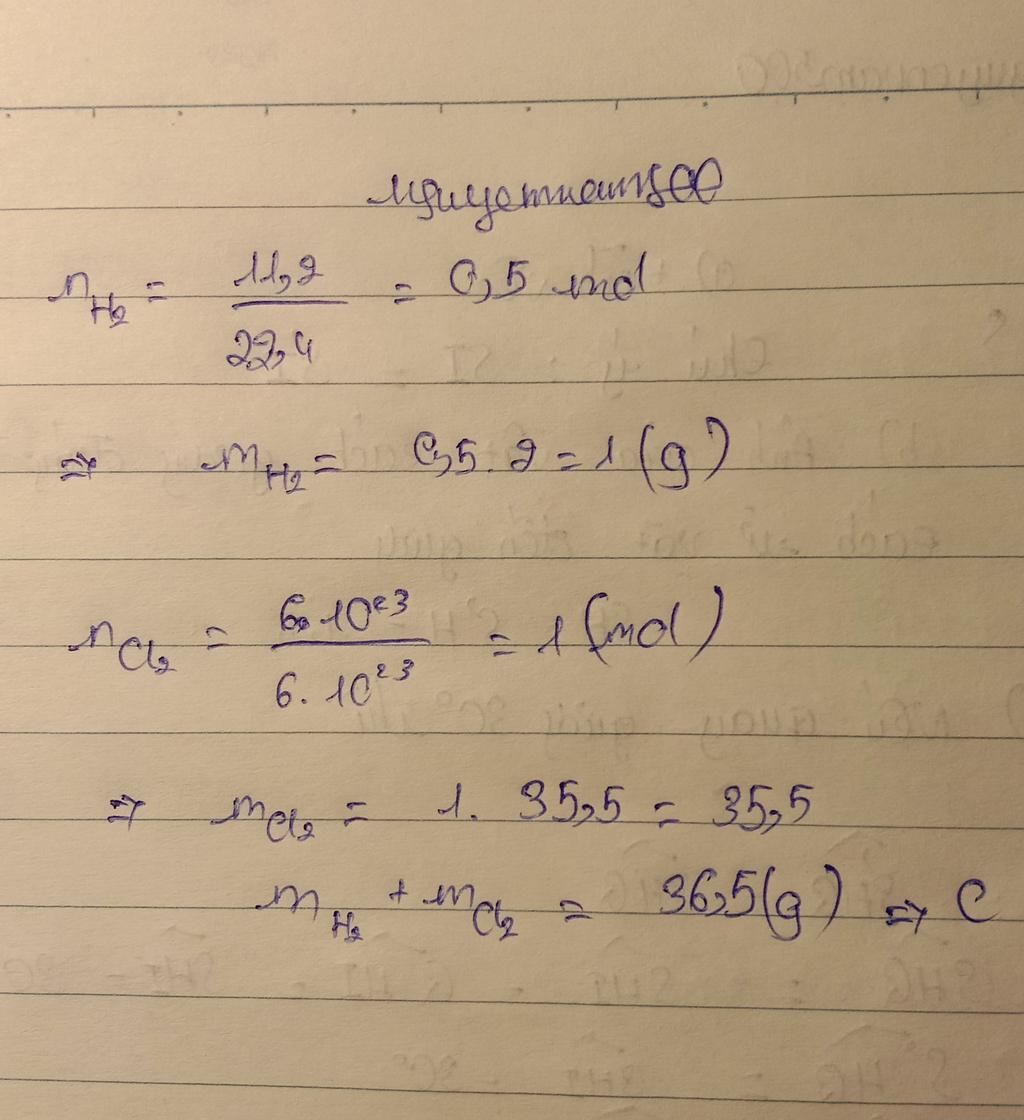 n_H₂ = 11,2 / 22,4 = 0,5 mol
⇒ m_H₂ = 0,5 . 2 = 1 (g)
n_Cl₂ = 6.10²³ / 6.10²³ = 1 (mol)
⇒ m_Cl₂ = 1. 35,5 = 35,5
m_H₂ + m_Cl₂ = 36,5(g) ⇒ C